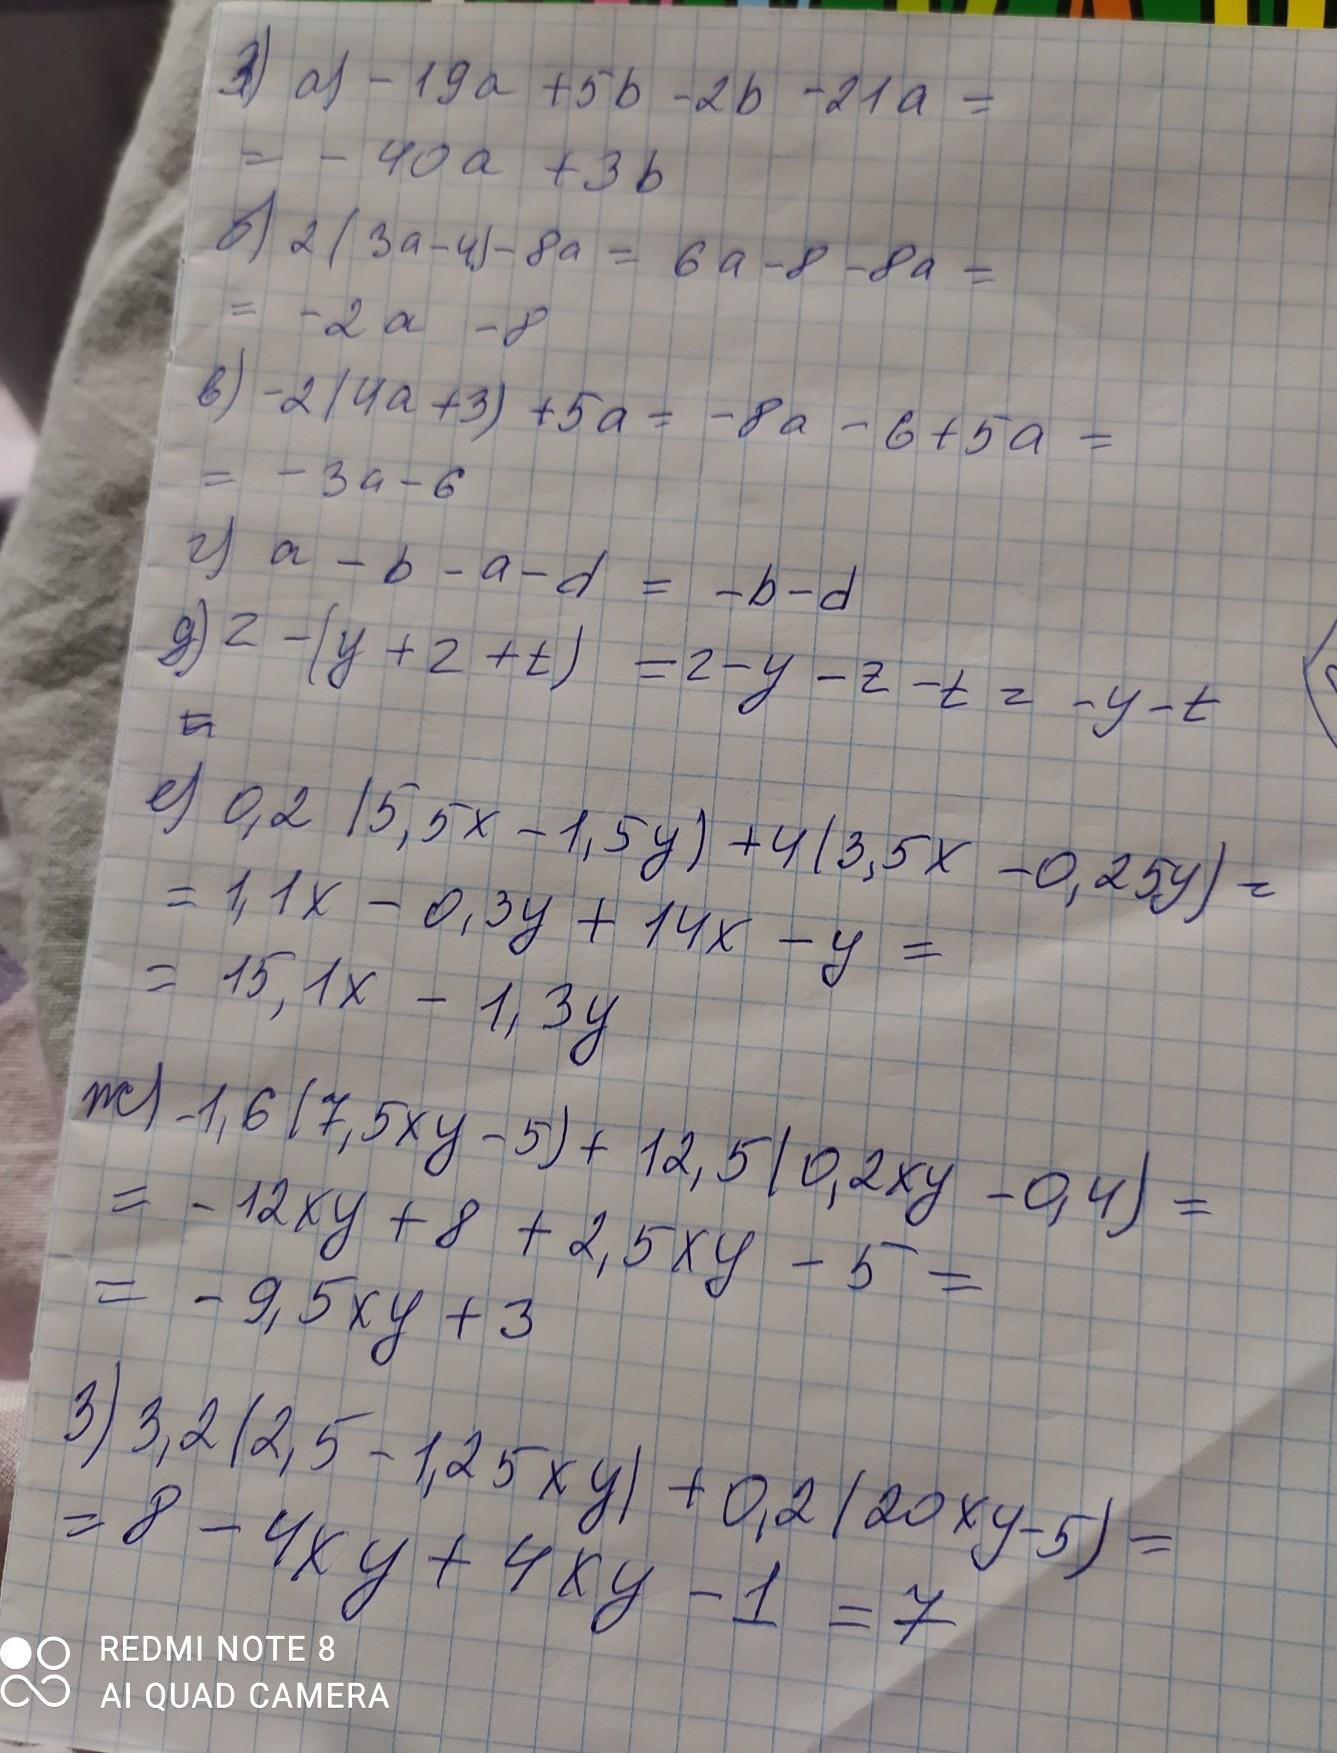 3) а) - 19a + 5b - 2b - 21a =
= - 40a + 3b
б) 2(3a-4)-8a = 6a-8-8a =
= -2a -8
в) -2(4a+3)+5a = -8a-6+5a =
= -3a-6
г) a - b - a - d = -b-d
д) z -(y+z+t) = z-y-z-t = -y-t
е) 0,2(5,5x-1,5y)+4(3,5x-0,25y)=
= 1,1x - 0,3y + 14x - y =
= 15,1x - 1,3y
ж) -1,6(7,5xy-5)+12,5(0,2xy-0,4)=
= -12xy + 8 + 2,5xy - 5 =
= -9,5xy + 3
з) 3,2(2,5-1,25xy)+0,2(20xy-5)=
= 8 - 4xy + 4xy - 1 = 7
REDMI NOTE 8
AI QUAD CAMERA